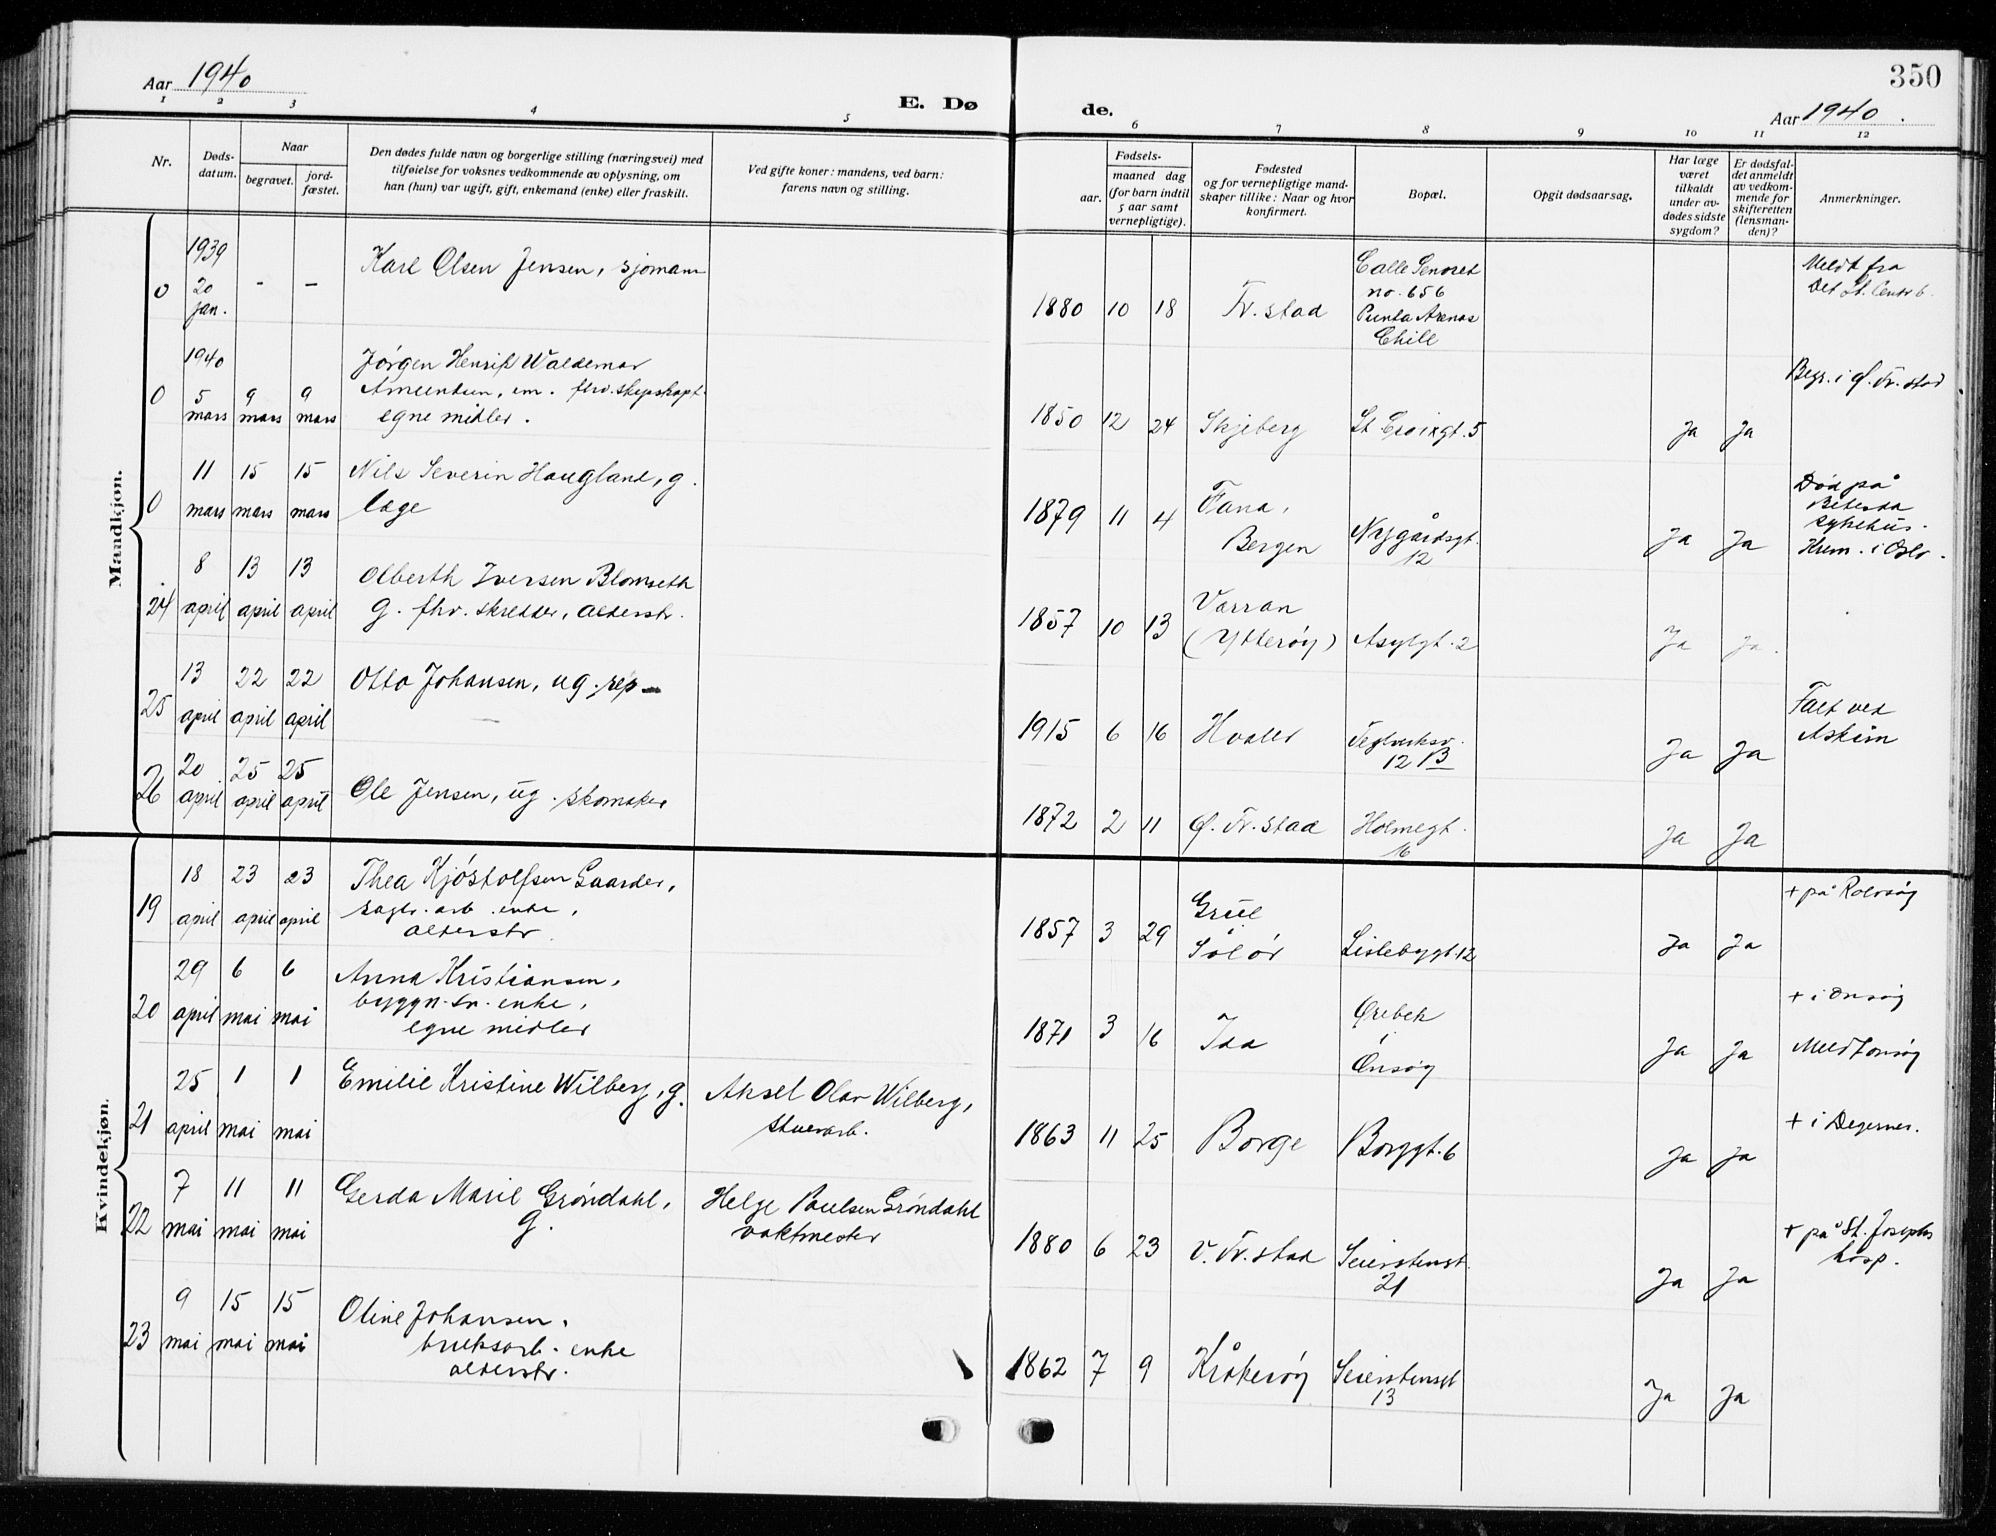 Aar 1940
E. Dø
de.
350
Aar 1940.
1 2 3 4 5 6 7 8 9 10 11 12
Nr.
Døds-
datum.
Naar
begravet.
jord-
fæstet.
Den dødes fulde navn og borgerlige stilling (næringsvei) med
tilføielse for voksnes vedkommende av oplysning, om
han (hun) var ugift, gift, enkemand (enke) eller fraskilt.
Ved gifte koner: mandens, ved barn:
farens navn og stilling.
Fødsels-
aar.
maaned dag
(for barn indtil
5 aar samt
vernepligtige).
Fødested
og for vernepligtige mand-
skaper tillike: Naar og hvor
konfirmert.
Bopæl.
Opgit dødsaarsag.
Har læge
været
tilkaldt
under av-
dødes sidste
sygdom?
Er dødsfal-
det anmeldt
av vedkom-
mende for
skifteretten
(lensman-
den)?
Anmerkninger.
Mandkjøn.
0
1939
20
jan.
- -
Karl Olsen Jensen, sjømann
1880 10 18
Fr.stad
Calle Senoret
no. 656
Punta Arenas
Chile
Meldt fra
Det st. Centrb.
0
1940
5 9 9
mars mars mars
Jørgen Henrik Waldemar
Amundsen, em. fhv. skipskapt.
egne midler.
1850 12 24
Skjeberg
St. Croixgt. 5
Ja Ja
Begr. i Ø. Fr.stad
0
11 15 15
mars mars mars
Nils Severin Haugland, g.
læge
1879 11 4
Fana,
Bergen
Nygårdsgt.
12
Ja Ja
Død på
Betesda
sykehus.
Krem. i Oslo.
24
8 13 13
april april april
Olberth Iversen Blomseth
g. fhv. skredder, alderstr.
1857 10 13
Varran
(Ytterøy)
Asylgt. 2
Ja Ja.
25
13 22 22
april april april
Otto Johansen, ug. rep
1915 6 16
Hvaler
Teglverksv.
12 B
Ja Ja
Falt ved
Askim
26
20 25 25
april april april
Ole Jensen, ug. skomaker
1872 2 11
Ø. Fr.stad
Holmegt.
16
Ja Ja
Kvindekjøn.
19
18 23 23
april april april
Thea Kjóstolfsen Gaarder,
sagbr. arb. enke,
alderstr.
1857 3 29
Grue
Solør
Lislebygt 12
Ja Ja
+ på Rolvsøy
20
29 6 6
april mai mai
Anna Kristiansen,
byggn.sn. enke,
egne midler
1871 3 16
Idd
Ørebek
i
Onsøy
Ja Ja
+ i Onsøy
Meldt Onsøy
21
25 1 1
april mai mai
Emilie Kristine Wilberg, g.
Aksel Olav Wilberg,
stuerarb.
1863 11 25
Borge
Borggt. 6
Ja Ja
+ i Degernes.
22
7 11 11
mai mai mai
Gerda Marie Gróndahl,
g.
Helge Paulsen Gróndahl
vaktmester
1880 6 23
V. Fr.stad
Seierstensgt.
21
Ja Ja
+ på St. Josephs
hosp.
23
9 15 15
mai mai mai
Oline Johansen,
bruksarb. enke
alderstr.
1862 7 9
Kråkerøy
Seierstensgt
13
Ja Ja